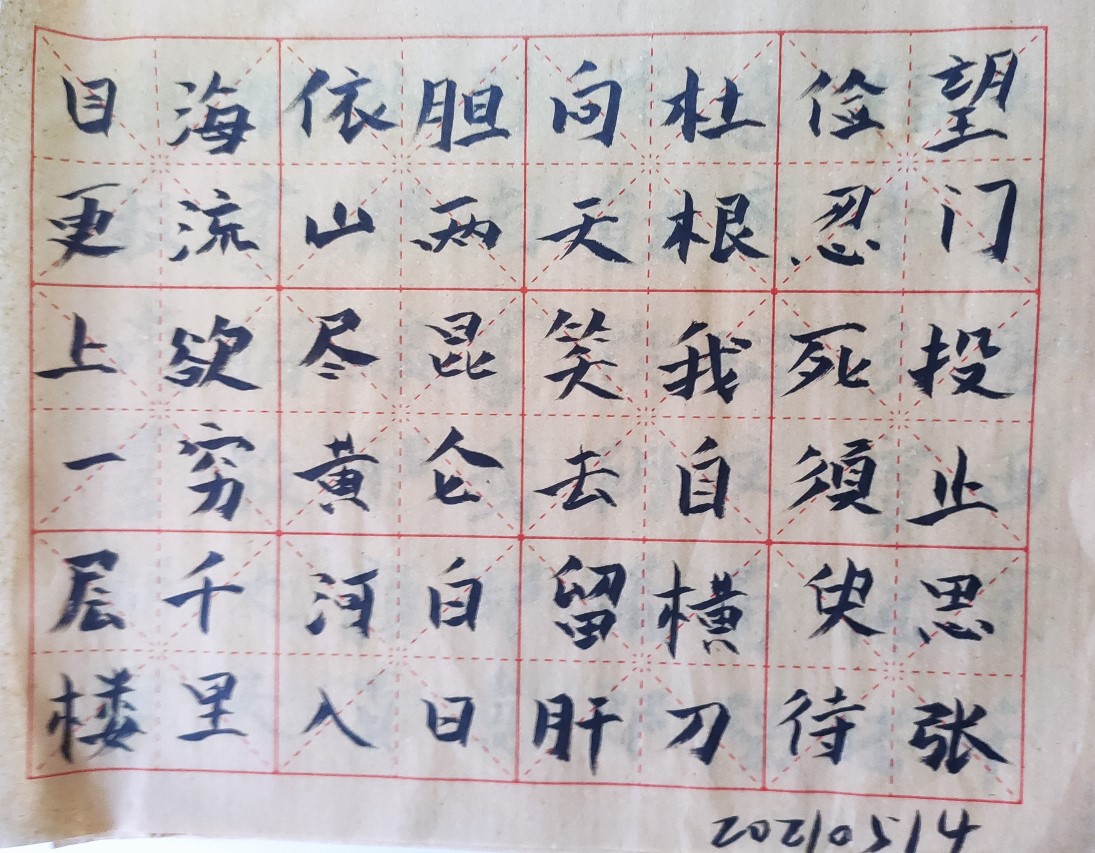 望门投止思张
俭忍死須臾待
杜根我自横刀
向天笑去留肝
胆两昆仑白日
依山尽黄河入
海流欲穷千里
目更上一层楼
20210514